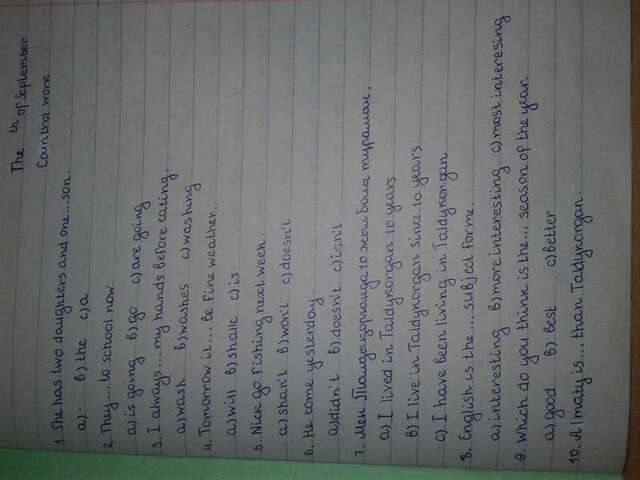 The th of September
Countrol work
1. She has two daughters and one...son.
a)- b) the c) a
2. They... to school now.
a) is going b) go c) are going
3. I always... my hands before eating.
a) wash b) washes c) washing
4. Tomorrow it... be fine weather.
a) will b) shall c) is
5. Nick go fishing next week.
a) shan't b) won't c) doesn't
6. He come yesterday.
a) didn't b) doesn't c) isn't
7. Мен Талдықорғанда 10 жыл бойы тұрамын.
a) I lived in Taldykorgan 10 years
b) I live in Taldykorgan since 10 years
c) I have been living in Taldykorgan
8. English is the ... subject for me.
a) interesting b) more interesting c) most interesing
9. Which do you think is the... season of the year.
a) good b) best c) better
10. Almaty is... than Taldykorgan.